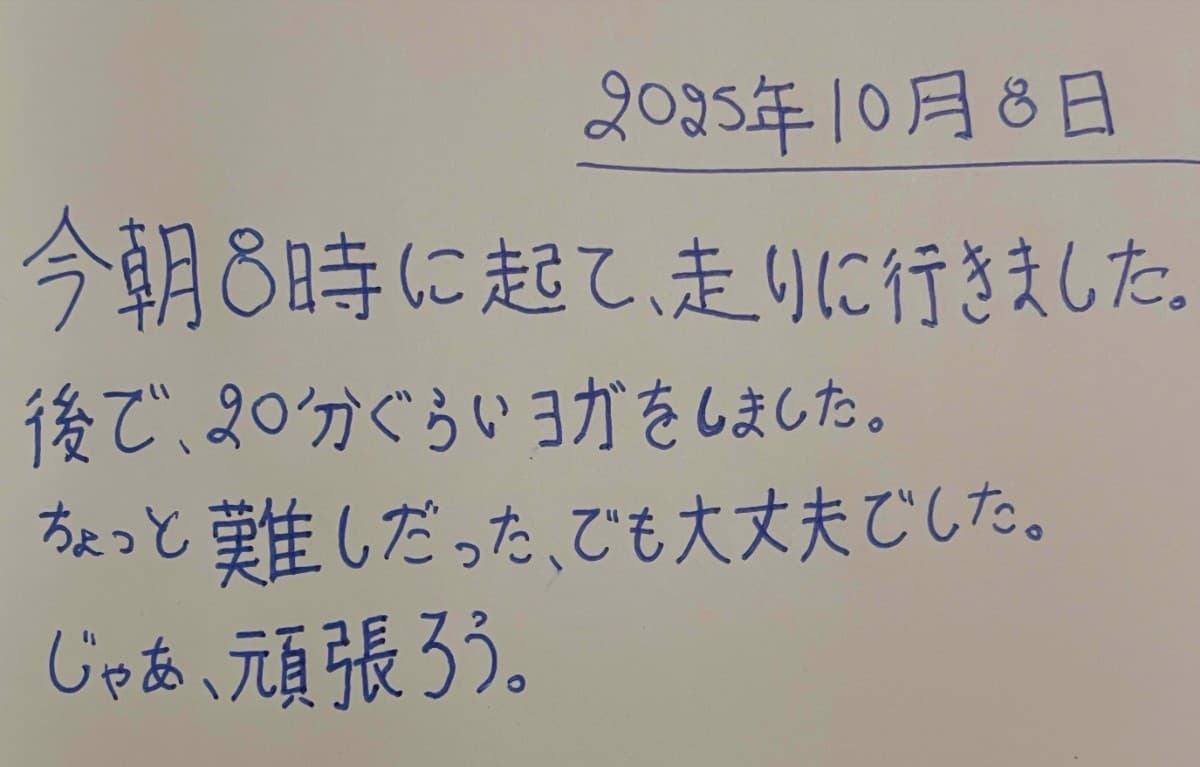 2025年10月8日
今朝8時に起て、走りに行きました。
後で、20分ぐらいヨガをしました。
ちょっと難しだった、でも大丈夫でした。
じゃあ、頑張ろう。